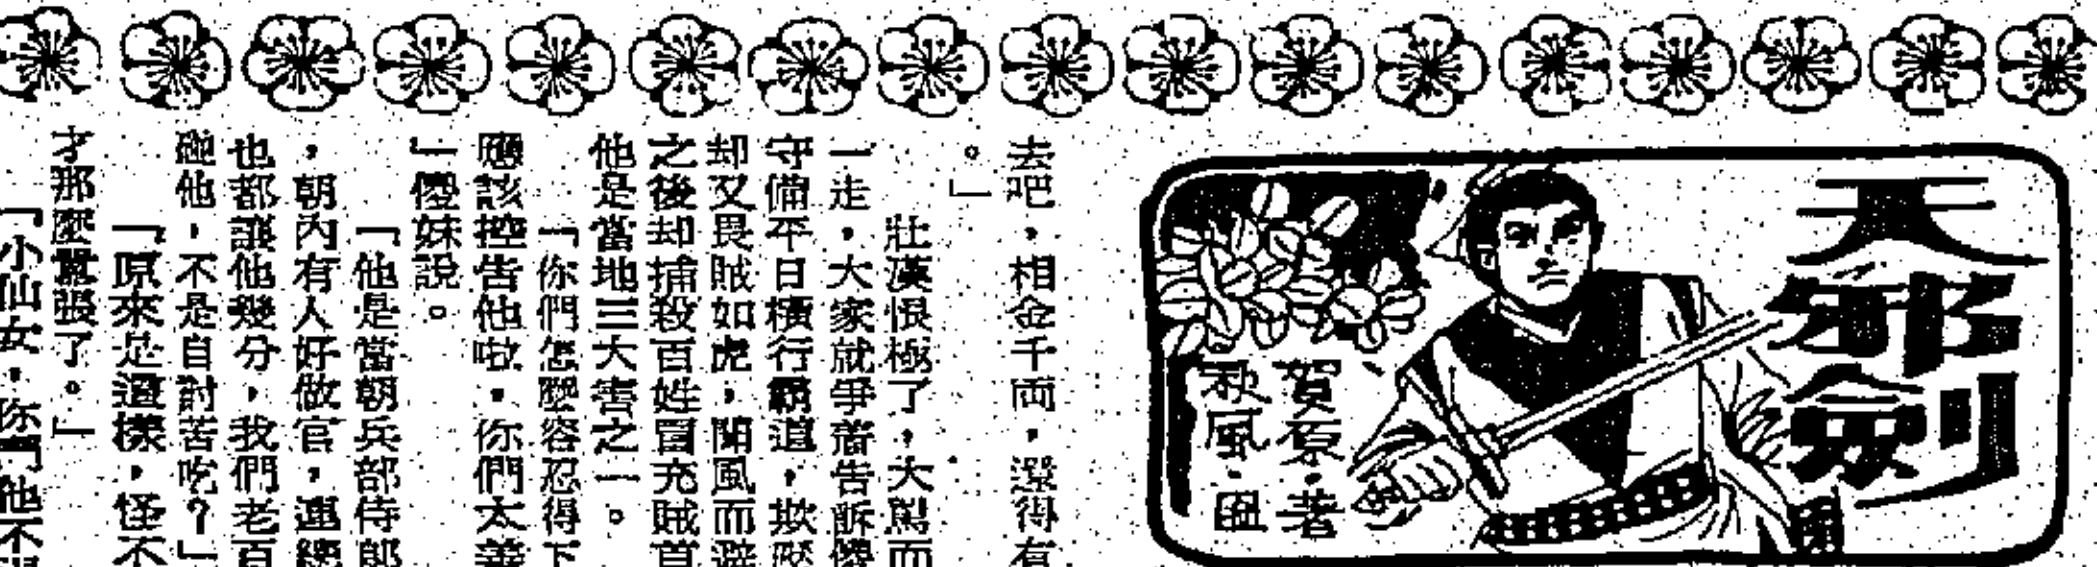 天邪劍
賀原·著
秋風·圖
去吧，相金千両，還得有
。」
壯漢恨極了，大駡而
一走，大家就爭着告訴傻
守備平日橫行霸道，欺壓
却又畏賊如虎，聞風而避
之後却捕殺百姓冒充賊首
他是當地三大害之一。
「你們怎麼容忍得下
應該控告他啦，你們太善
」傻妹說。
「他是當朝兵部侍郎
，朝內有人好做官，連總
也都讓他幾分，我們老百
碰他，不是自討苦吃？」
「原來是這樣，怪不
才那麼囂張了。」
「小仙女，你鬥他不